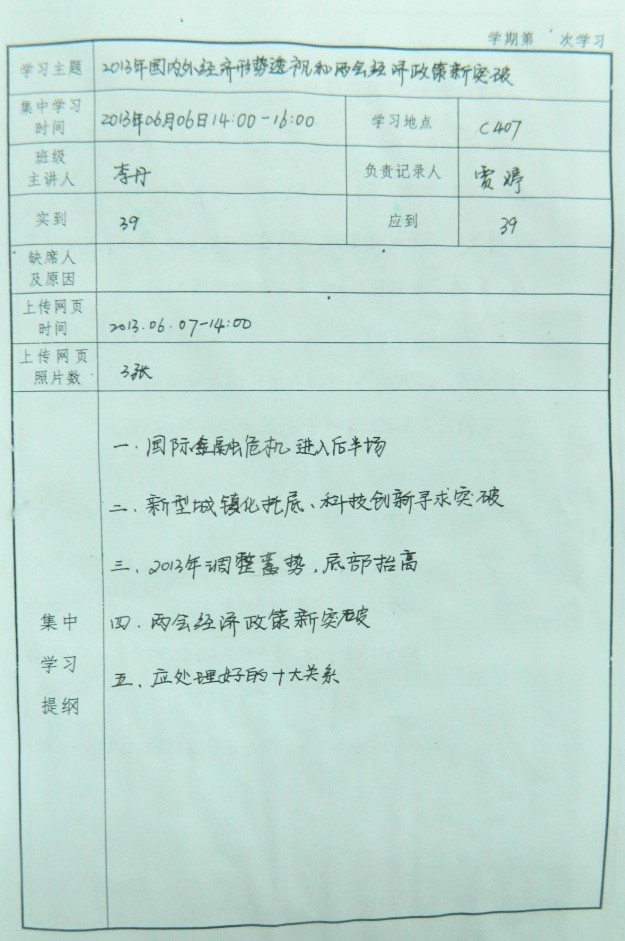 学期第 次学习
学习主题 2013年国内外经济形势透视和两会经济政策新突破
集中学习时间 2013年06月06日14:00-16:00 学习地点 C407
班级主讲人 李丹 负责记录人 贾婷
实到 39 应到 39
缺席人及原因
上传网页时间 2013.06.07-14:00
上传网页照片数 3张
集中学习提纲
一.国际金融危机进入后半场
二.新型城镇化托底、科技创新寻求突破
三、2013年调整蓄势,底部抬高
四.两会经济政策新突破
五、应处理好的十大关系